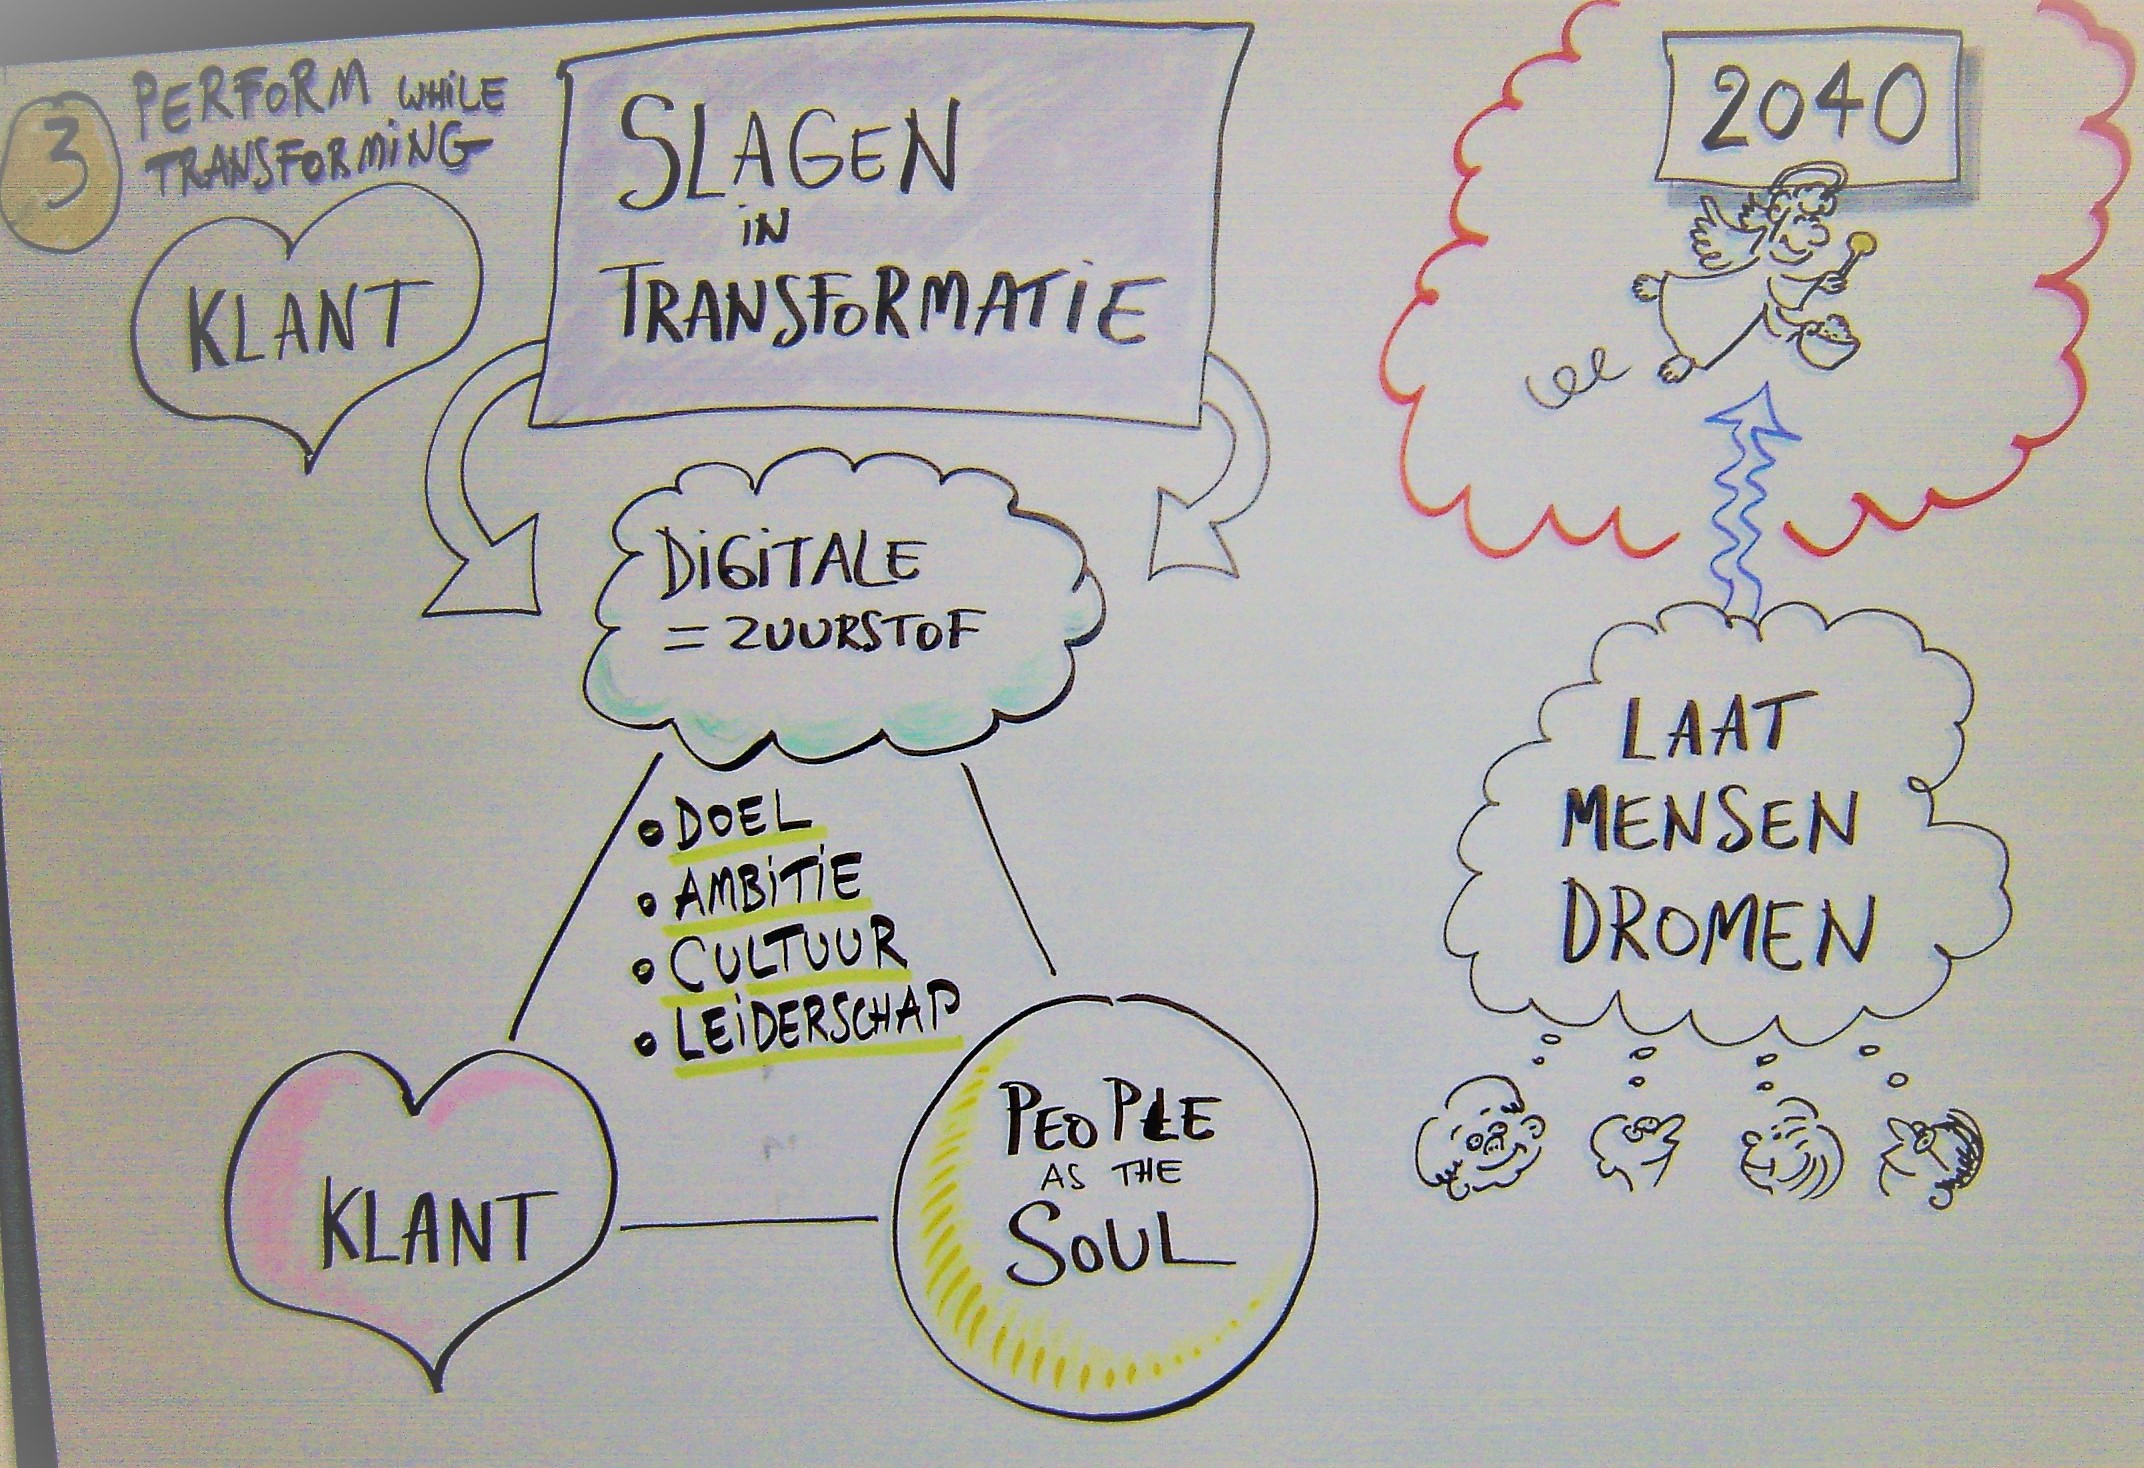 3
PERFORM WHILE
TRANSFORMING
KLANT
SLAGEN
IN
TRANSFORMATIE
DIGITALE
= ZUURSTOF
• DOEL
• AMBITIE
• CULTUUR
• LEIDERSCHAP
KLANT
PEOPLE
AS THE
SOUL
2040
LAAT
MENSEN
DROMEN